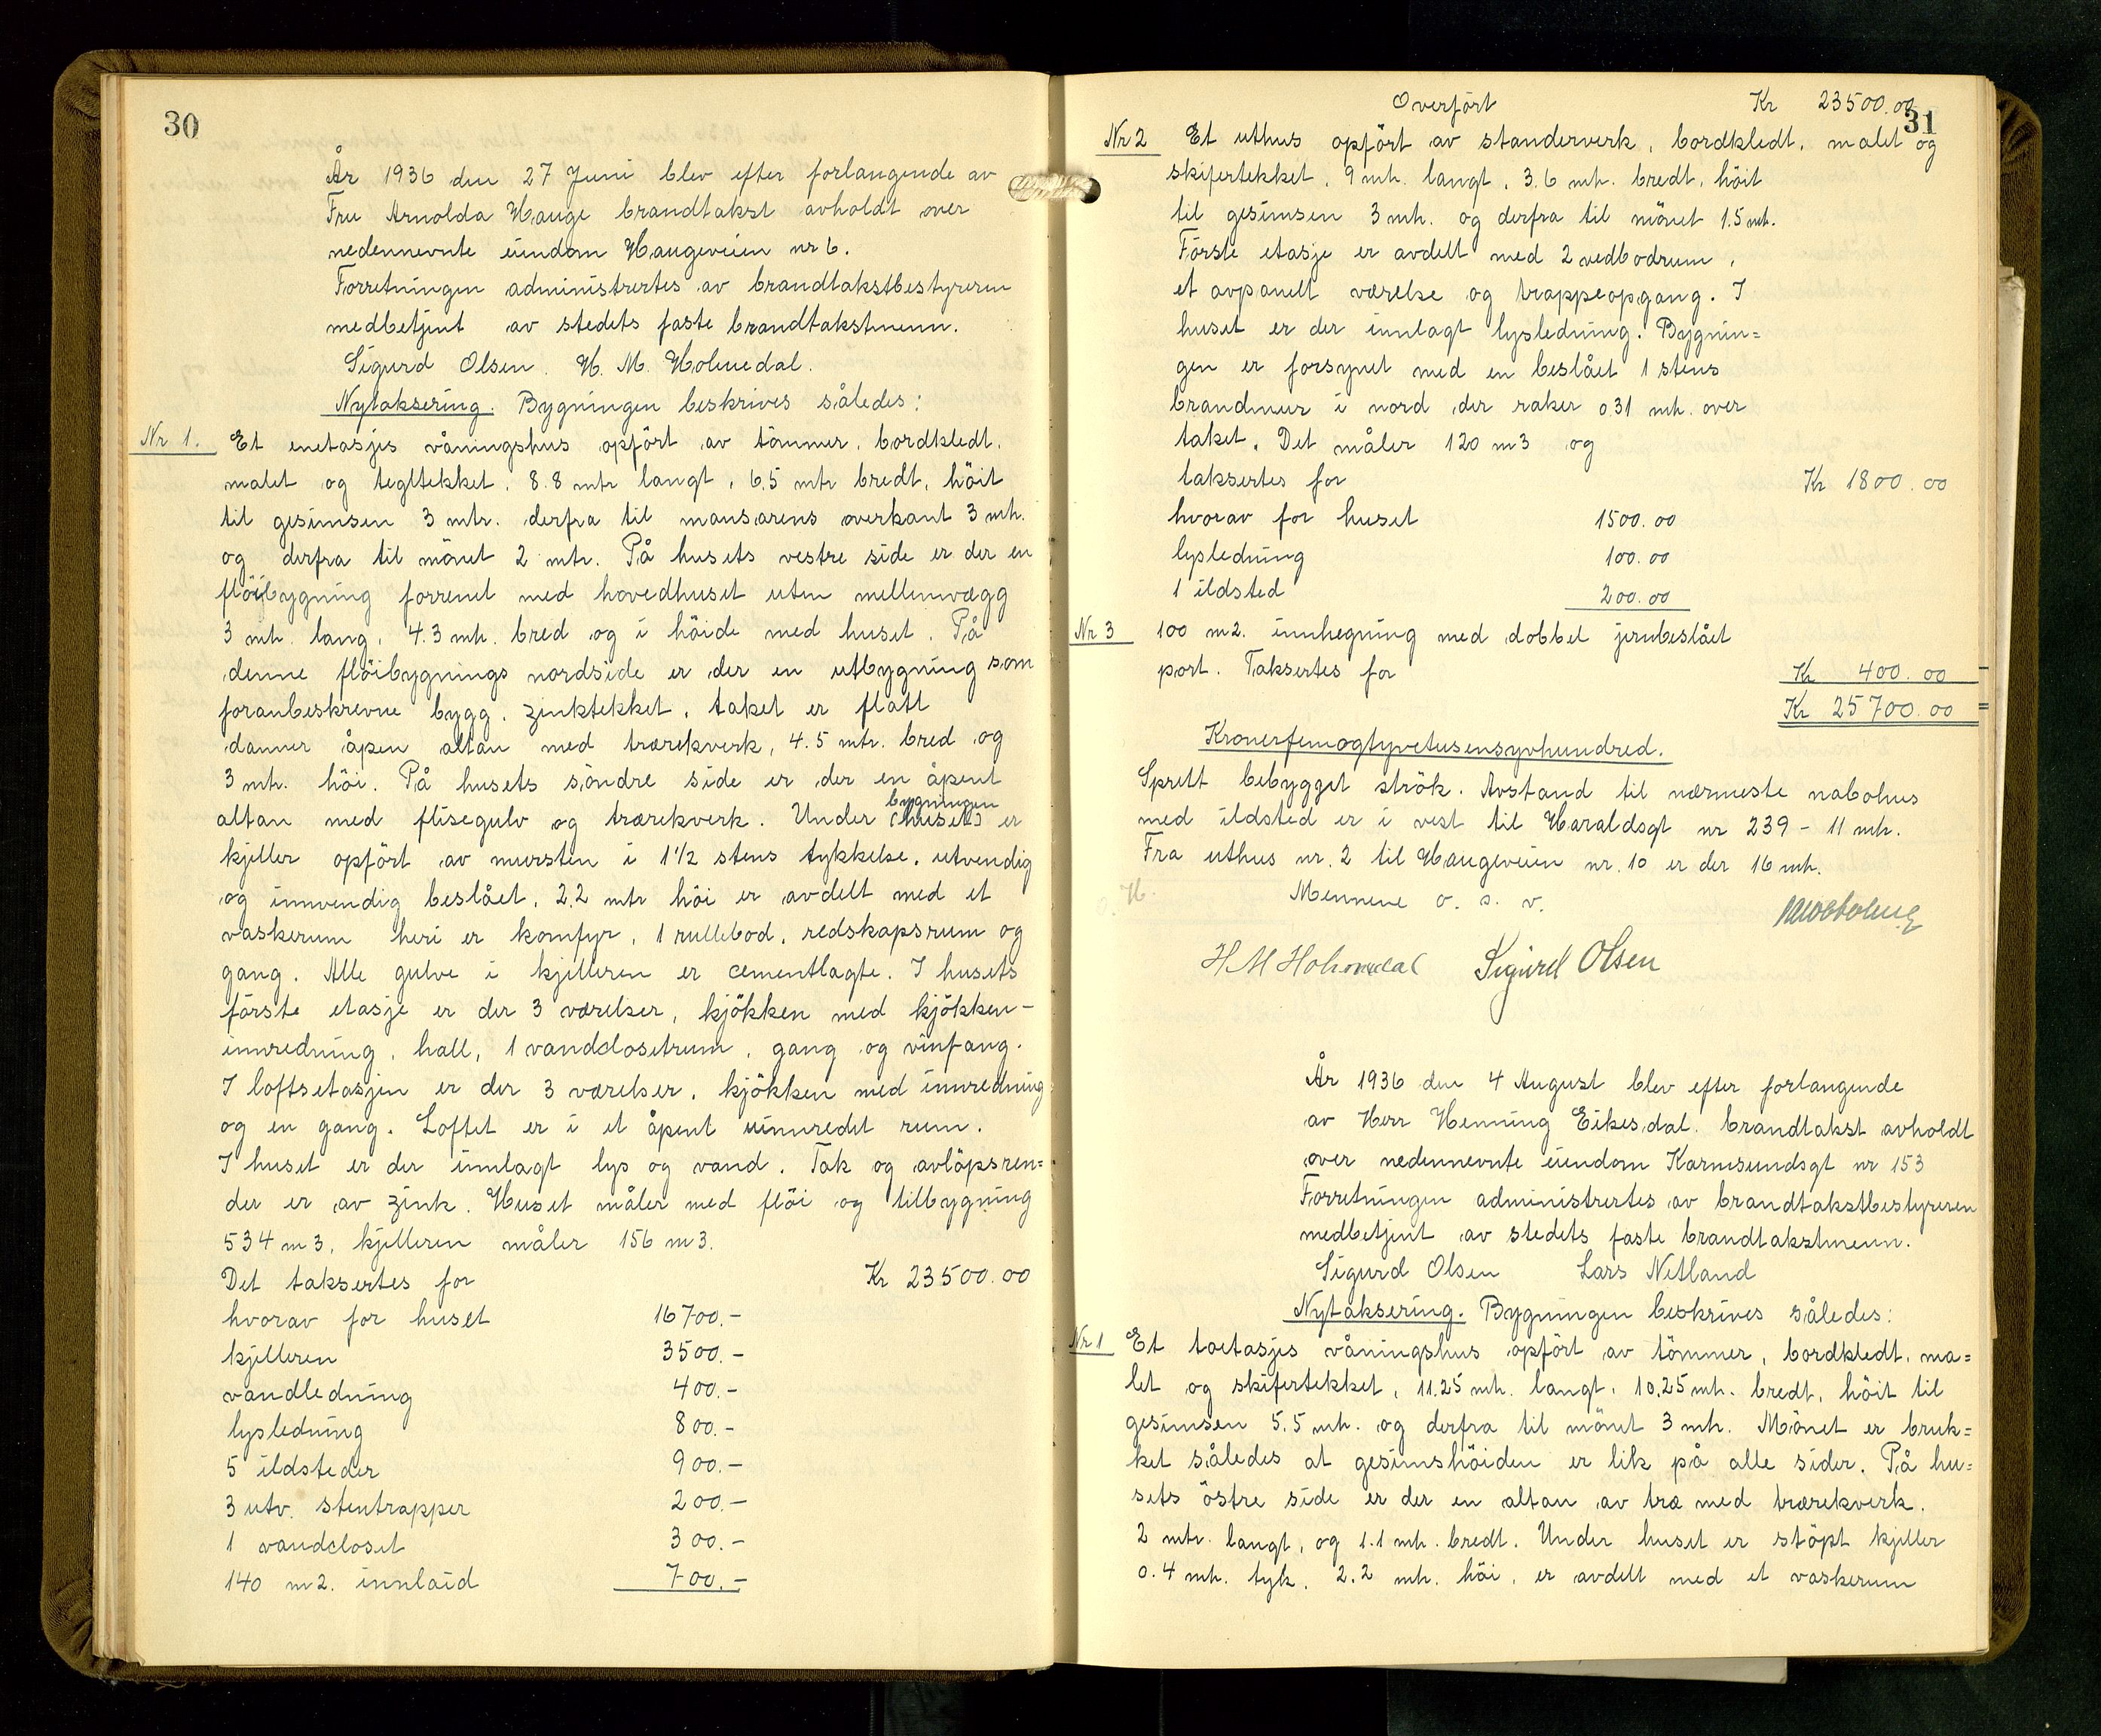 30
År 1936 den 27 Juni blev efter forlangende av
Fru Arnolda Hauge brandtakst avholdt over
nedennevnte eiendom Haugeveien nr 6.
Forretningen administrertes av brandtakstbestyreren
medbetjent av stedets faste brandtakstmenn.
Sigurd Olsen. H. M. Holmedal.
Nytaksering. Bygningen beskrives således:
Nr 1. Et enetasjes våningshus opfört av tömmer, bordkledt,
malet og tegltekket, 8.8 mtr langt, 6.5 mtr bredt, höit
til gesimsen 3 mtr. derfra til mansarens overkant 3 mtr.
og derfra til mönet 2 mtr. På husets vestre side er der en
flöibygning forrenet med hovedhuset uten mellemvægg
3 mtr. lang, 4.3 mtr. bred og i höide med huset. På
denne flöibygnings nordside er der en utbygning som
foranbeskrevne bygg, zinktekket, taket er flatt
danner åpen altan med trærekverk, 4.5 mtr. bred og
3 mtr. höi. På husets söndre side er der en åpent
bygningen
altan med flisegulv og trærekverk. Under (huset) er
kjeller opfört av mursten i 1½ stens tykkelse, utvendig
og innvendig beslået, 2.2 mtr höi er avdelt med et
vaskerum heri er komfyr, 1 rullebod, redskapsrum og
gang. Alle gulve i kjelleren er cementlagte. I husets
förste etasje er der 3 værelser, kjökken med kjökken-
innredning, hall, 1 vandclosetrum, gang og vinfang.
I loftsetasjen er der 3 værelser, kjökken med innredning
og en gang. Loftet er i et åpent uinnredet rum.
I huset er der innlagt lys og vand. Tak og avlöpsren=
der er av zink. Huset måler med flöi og tilbygning
534 m3, kjelleren måler 156 m3.
Det taksertes for Kr 23500.00
hvorav for huset 16700.-
kjelleren 3500.-
vandledning 400.-
lysledning 800.-
5 ildsteder 900.-
3 utv. stentrapper 200.-
1 vandcloset 300.-
140 m2. innlaid 700.-
31
Overfört Kr 23500.00
Nr 2 Et uthus opfört av standerverk, bordkledt, malet og
skifertekket, 9 mtr. langt, 3.6 mtr. bredt, höit
til gesimsen 3 mtr. og derfra til mönet 1.5 mtr.
Förste etasje er avdelt med 2 vedbodrum,
et avpanelt værelse og trappeopgang. I
huset er der innlagt lysledning. Bygnin=
gen er forsynet med en beslået 1 stens
brandmur i nord der raker 0.31 mtr. over
taket. Det måler 120 m3 og
taksertes for Kr 1800.00
hvorav for huset 1500.00
lysledning 100.00
1 ildsted 200.00
Nr 3 100 m2. innhegning med dobbel jernbeslået
port. Taksertes for Kr 400.00
Kr 25700.00
Kronerfemogtyvetusensyvhundred.
Spredt bebygget strök. Avstand til nærmeste nabohus
med ildsted er i vest til Haraldsgt nr 239 - 11 mtr.
Fra uthus nr. 2 til Haugeveien nr. 10 er der 16 mtr.
Mennene o. s. v.
H M Holmedal Sigurd Olsen
År 1936 den 4 August blev efter forlangende
av Herr Henning Eikesdal, brandtakst avholdt
over nedennevnte eiendom Karmsundsgt nr 153
Forretningen administrertes av brandtakstbestyreren
medbetjent av stedets faste brandtakstmenn.
Sigurd Olsen Lars Netland
Nytaksering. Bygningen beskrives således:
Nr 1 Et toetasjes våningshus opfört av tömmer, bordkledt, ma=
let og skifertekket, 11.25 mtr. langt, 10.25 mtr. bredt, höit til
gesimsen 5.5 mtr. og derfra til mönet 3 mtr. Mönet er bruk=
ket således at gesimshöiden er lik på alle sider. På hu=
sets östre side er der en altan av træ med trærekverk.
2 mtr. langt, og 1.1 mtr. bredt. Under huset er stöpt kjeller
0.4 mtr. tyk, 2.2 mtr. höi, er avdelt med et vaskerum